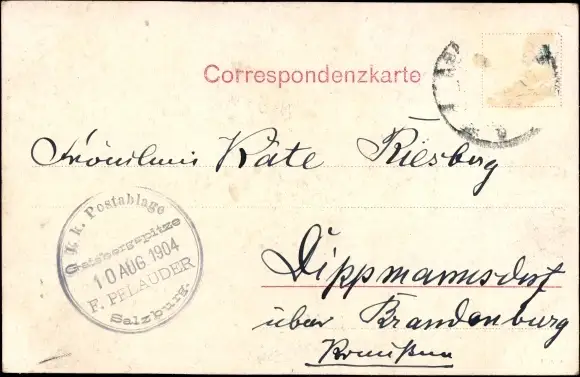 Correspondenzkarte
Fräulein Käte Riesberg
Dippmannsdorf
über Brandenburg
Preußen
k. k. Postablage
Gaisbergspitze
10 AUG 1904
F. PFLAUDER
Salzburg.